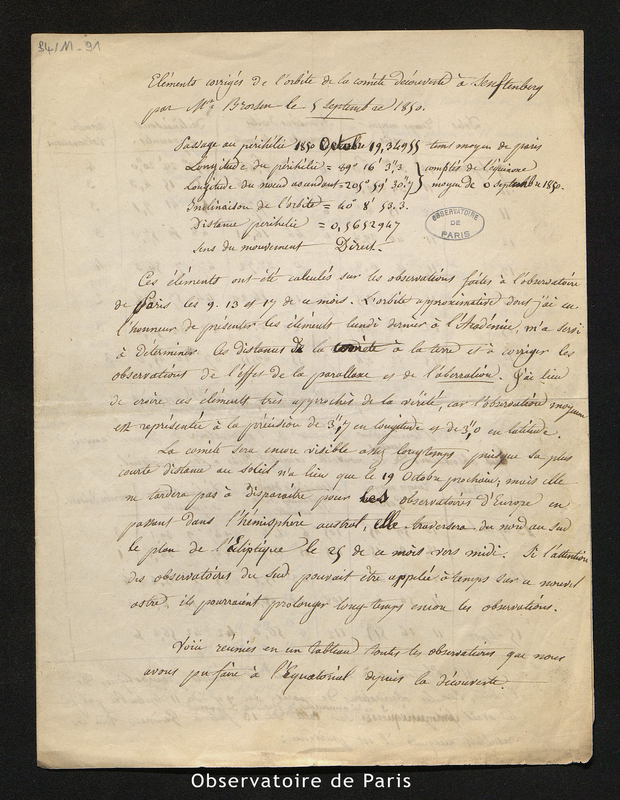 84/11-91
Eléments corrigés de l'orbite de la comète découverte à Senftenberg
par Mr. Brorsen le 5 Septembre 1850.
Passage au périhélie 1850 Octobre 19,34955 tems moyen de paris
Longitude du périhélie = 89° 16' 3",3 } comptés de l'équinoxe
Longitude du nœud ascendant = 205° 59' 30",7 } moyen de 0 septembre 1850.
Inclinaison de l'orbite = 40° 8' 53.3
Distance périhélie = 0,5652947
Sens du mouvement Direct.
OBSERVATOIRE
DE
PARIS
Ces éléments ont été calculés sur les observations faites à l'observatoire
de Paris les 9. 13 et 17 de ce mois. L'orbite approximative dont j'ai eu
l'honneur de présenter les éléments lundi dernier à l'Académie, m'a servi
à déterminer les distances de la comète à la terre et à corriger les
observations de l'effet de la parallaxe et de l'aberration. J'ai lieu
de croire ces éléments très approchés de la vérité, car l'observation moyenne
est représentée à la précision de 3",7 en longitude et de 3",0 en latitude.
La comète sera encore visible assez longtemps puisque sa plus
courte distance au soleil n'a lieu que le 19 Octobre prochain; mais elle
ne tardera pas à disparaître pour les observatoires d'Europe en
passant dans l'hémisphère austral, elle traversera du nord au sud
le plan de l'Écliptique le 25 de ce mois vers midi. Si l'attention
des observatoires du Sud pouvait être appelée à temps sur ce nouvel
astre, ils pourraient prolonger long-temps encore les observations.
Voici réunies en un tableau toutes les observations que nous
avons pu faire à l'Equatorial depuis la découverte.
Observatoire de Paris